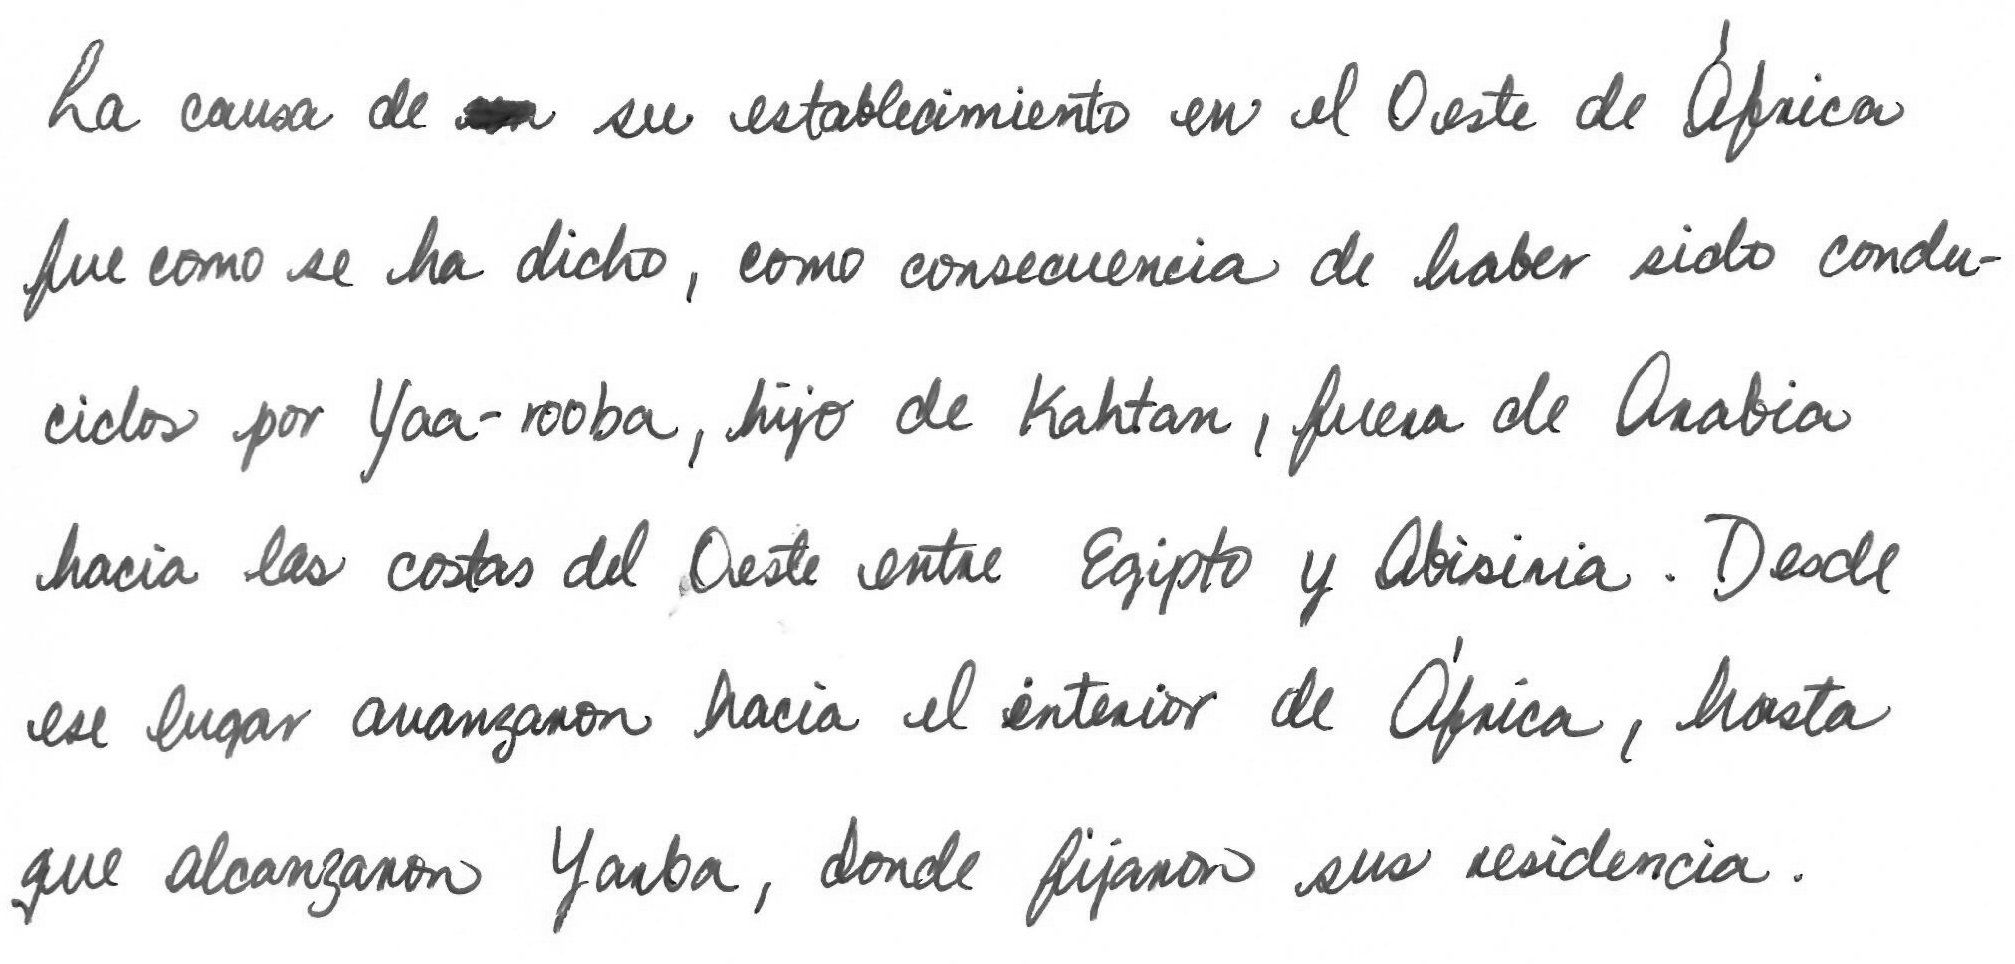 La causa de su establecimiento en el Oeste de África
fue como se ha dicho, como consecuencia de haber sido condu-
cidos por Yaa-rooba, hijo de Kahtan, fuera de Arabia
hacia las costas del Oeste entre Egipto y Abisinia. Desde
ese lugar avanzaron hacia el interior de África, hasta
que alcanzaron Yarba, donde fijaron sus residencia.